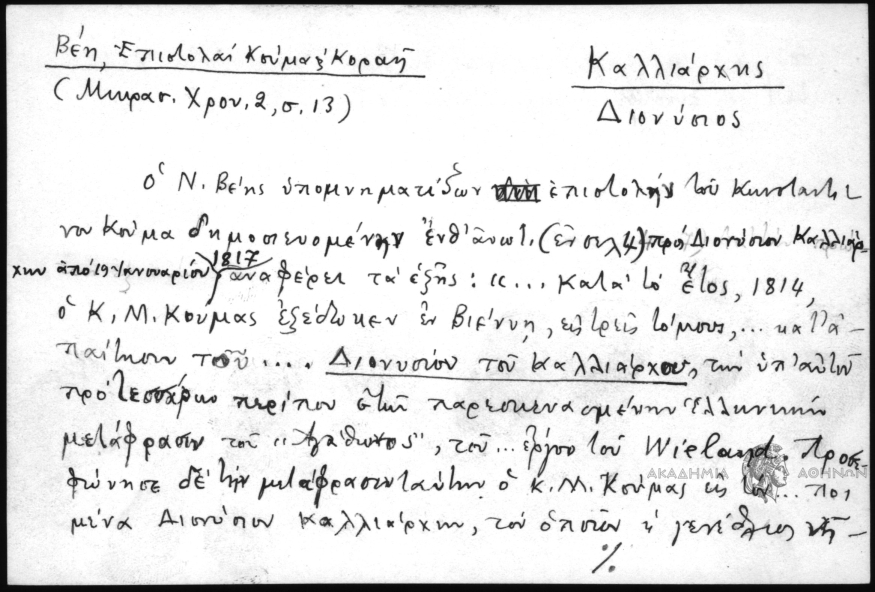 Βέη, Ἐπιστολαί Κούμα & Κοραῆ
(Μικρασ. Χρον. 2, σ. 13)
Καλλιάρχης
Διονύσιος
Ὁ Ν. Βέης ὑπομνηματίζων ἐπιστολήν τοῦ Κωνσταντί
νου Κούμα δημοσιευομένην ἔνθ' ἄνωτ. (ἐν σελ 4) πρός Διονύσιον Καλλιάρ-
χην ἀπό 19 Ἰανουαρίου 1817 ἀναφέρει τά ἑξῆς: «... Κατά τό ἔτος, 1814,
ὁ Κ. Μ. Κούμας ἐξέδωκεν ἐν Βιέννῃ, εἰς τρεῖς τόμους, ... κατ' ἀ-
παίτησιν τοῦ .... Διονυσίου τοῦ Καλλιάρχου, τήν ὑπ' αὐτοῦ
πρό τεσσάρων περίπου ἐτῶν παρεσκευασμένην Ἑλληνικήν
μετάφρασιν τοῦ «Ἀγάθωνος», τοῦ ... ἔργου τοῦ Wieland. Προσε-
φώνησε δέ τήν μετάφρασιν ταύτην ὁ Κ. Μ. Κούμας εἰς τόν ... ποι
μένα Διονύσιον Καλλιάρχην, τοῦ ὁποίου ἡ γενέθλιος γῆ -
%
ΑΚΑΔΗΜΙΑ ΑΘΗΝΩΝ